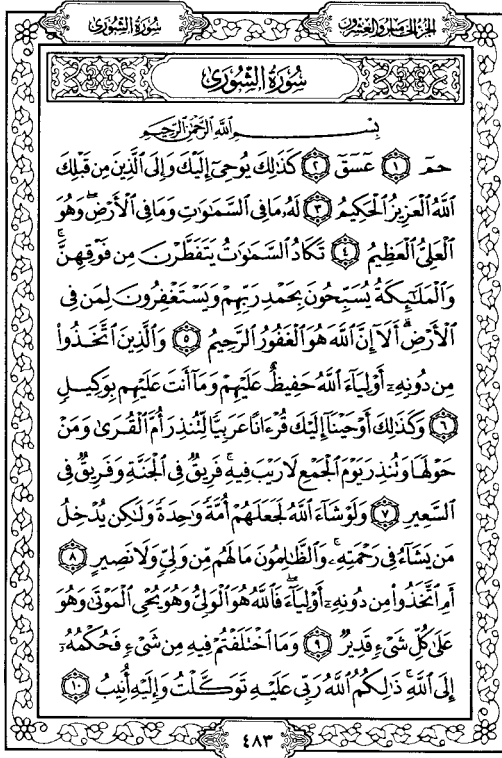 سُورَةُ الشُّورَىٰ
الجزء الخامس والعشرون
سُورَةُ الشُّورَىٰ
بِسْمِ اللَّهِ الرَّحْمَٰنِ الرَّحِيمِ
حمٓ ١ عٓسٓقٓ ٢ كَذَٰلِكَ يُوحِىٓ إِلَيْكَ وَإِلَى ٱلَّذِينَ مِن قَبْلِكَ
ٱللَّهُ ٱلْعَزِيزُ ٱلْحَكِيمُ ٣ لَهُۥ مَا فِى ٱلسَّمَٰوَٰتِ وَمَا فِى ٱلْأَرْضِ ۖ وَهُوَ
ٱلْعَلِىُّ ٱلْعَظِيمُ ٤ تَكَادُ ٱلسَّمَٰوَٰتُ يَتَفَطَّرْنَ مِن فَوْقِهِنَّ ۚ
وَٱلْمَلَٰٓئِكَةُ يُسَبِّحُونَ بِحَمْدِ رَبِّهِمْ وَيَسْتَغْفِرُونَ لِمَن فِى
ٱلْأَرْضِ ۗ أَلَآ إِنَّ ٱللَّهَ هُوَ ٱلْغَفُورُ ٱلرَّحِيمُ ٥ وَٱلَّذِينَ ٱتَّخَذُوا۟
مِن دُونِهِۦٓ أَوْلِيَآءَ ٱللَّهُ حَفِيظٌ عَلَيْهِمْ وَمَآ أَنتَ عَلَيْهِم بِوَكِيلٍ
٦ وَكَذَٰلِكَ أَوْحَيْنَآ إِلَيْكَ قُرْءَانًا عَرَبِيًّا لِّتُنذِرَ أُمَّ ٱلْقُرَىٰ وَمَنْ
حَوْلَهَا وَتُنذِرَ يَوْمَ ٱلْجَمْعِ لَا رَيْبَ فِيهِ ۚ فَرِيقٌ فِى ٱلْجَنَّةِ وَفَرِيقٌ فِى
ٱلسَّعِيرِ ٧ وَلَوْ شَآءَ ٱللَّهُ لَجَعَلَهُمْ أُمَّةً وَٰحِدَةً وَلَٰكِن يُدْخِلُ
مَن يَشَآءُ فِى رَحْمَتِهِۦ ۚ وَٱلظَّٰلِمُونَ مَا لَهُم مِّن وَلِىٍّ وَلَا نَصِيرٍ ٨
أَمِ ٱتَّخَذُوا۟ مِن دُونِهِۦٓ أَوْلِيَآءَ ۖ فَٱللَّهُ هُوَ ٱلْوَلِىُّ وَهُوَ يُحْىِ ٱلْمَوْتَىٰ وَهُوَ
عَلَىٰ كُلِّ شَىْءٍ قَدِيرٌ ٩ وَمَا ٱخْتَلَفْتُمْ فِيهِ مِن شَىْءٍ فَحُكْمُهُۥٓ
إِلَى ٱللَّهِ ۚ ذَٰلِكُمُ ٱللَّهُ رَبِّى عَلَيْهِ تَوَكَّلْتُ وَإِلَيْهِ أُنِيبُ ١٠
٤٨٣